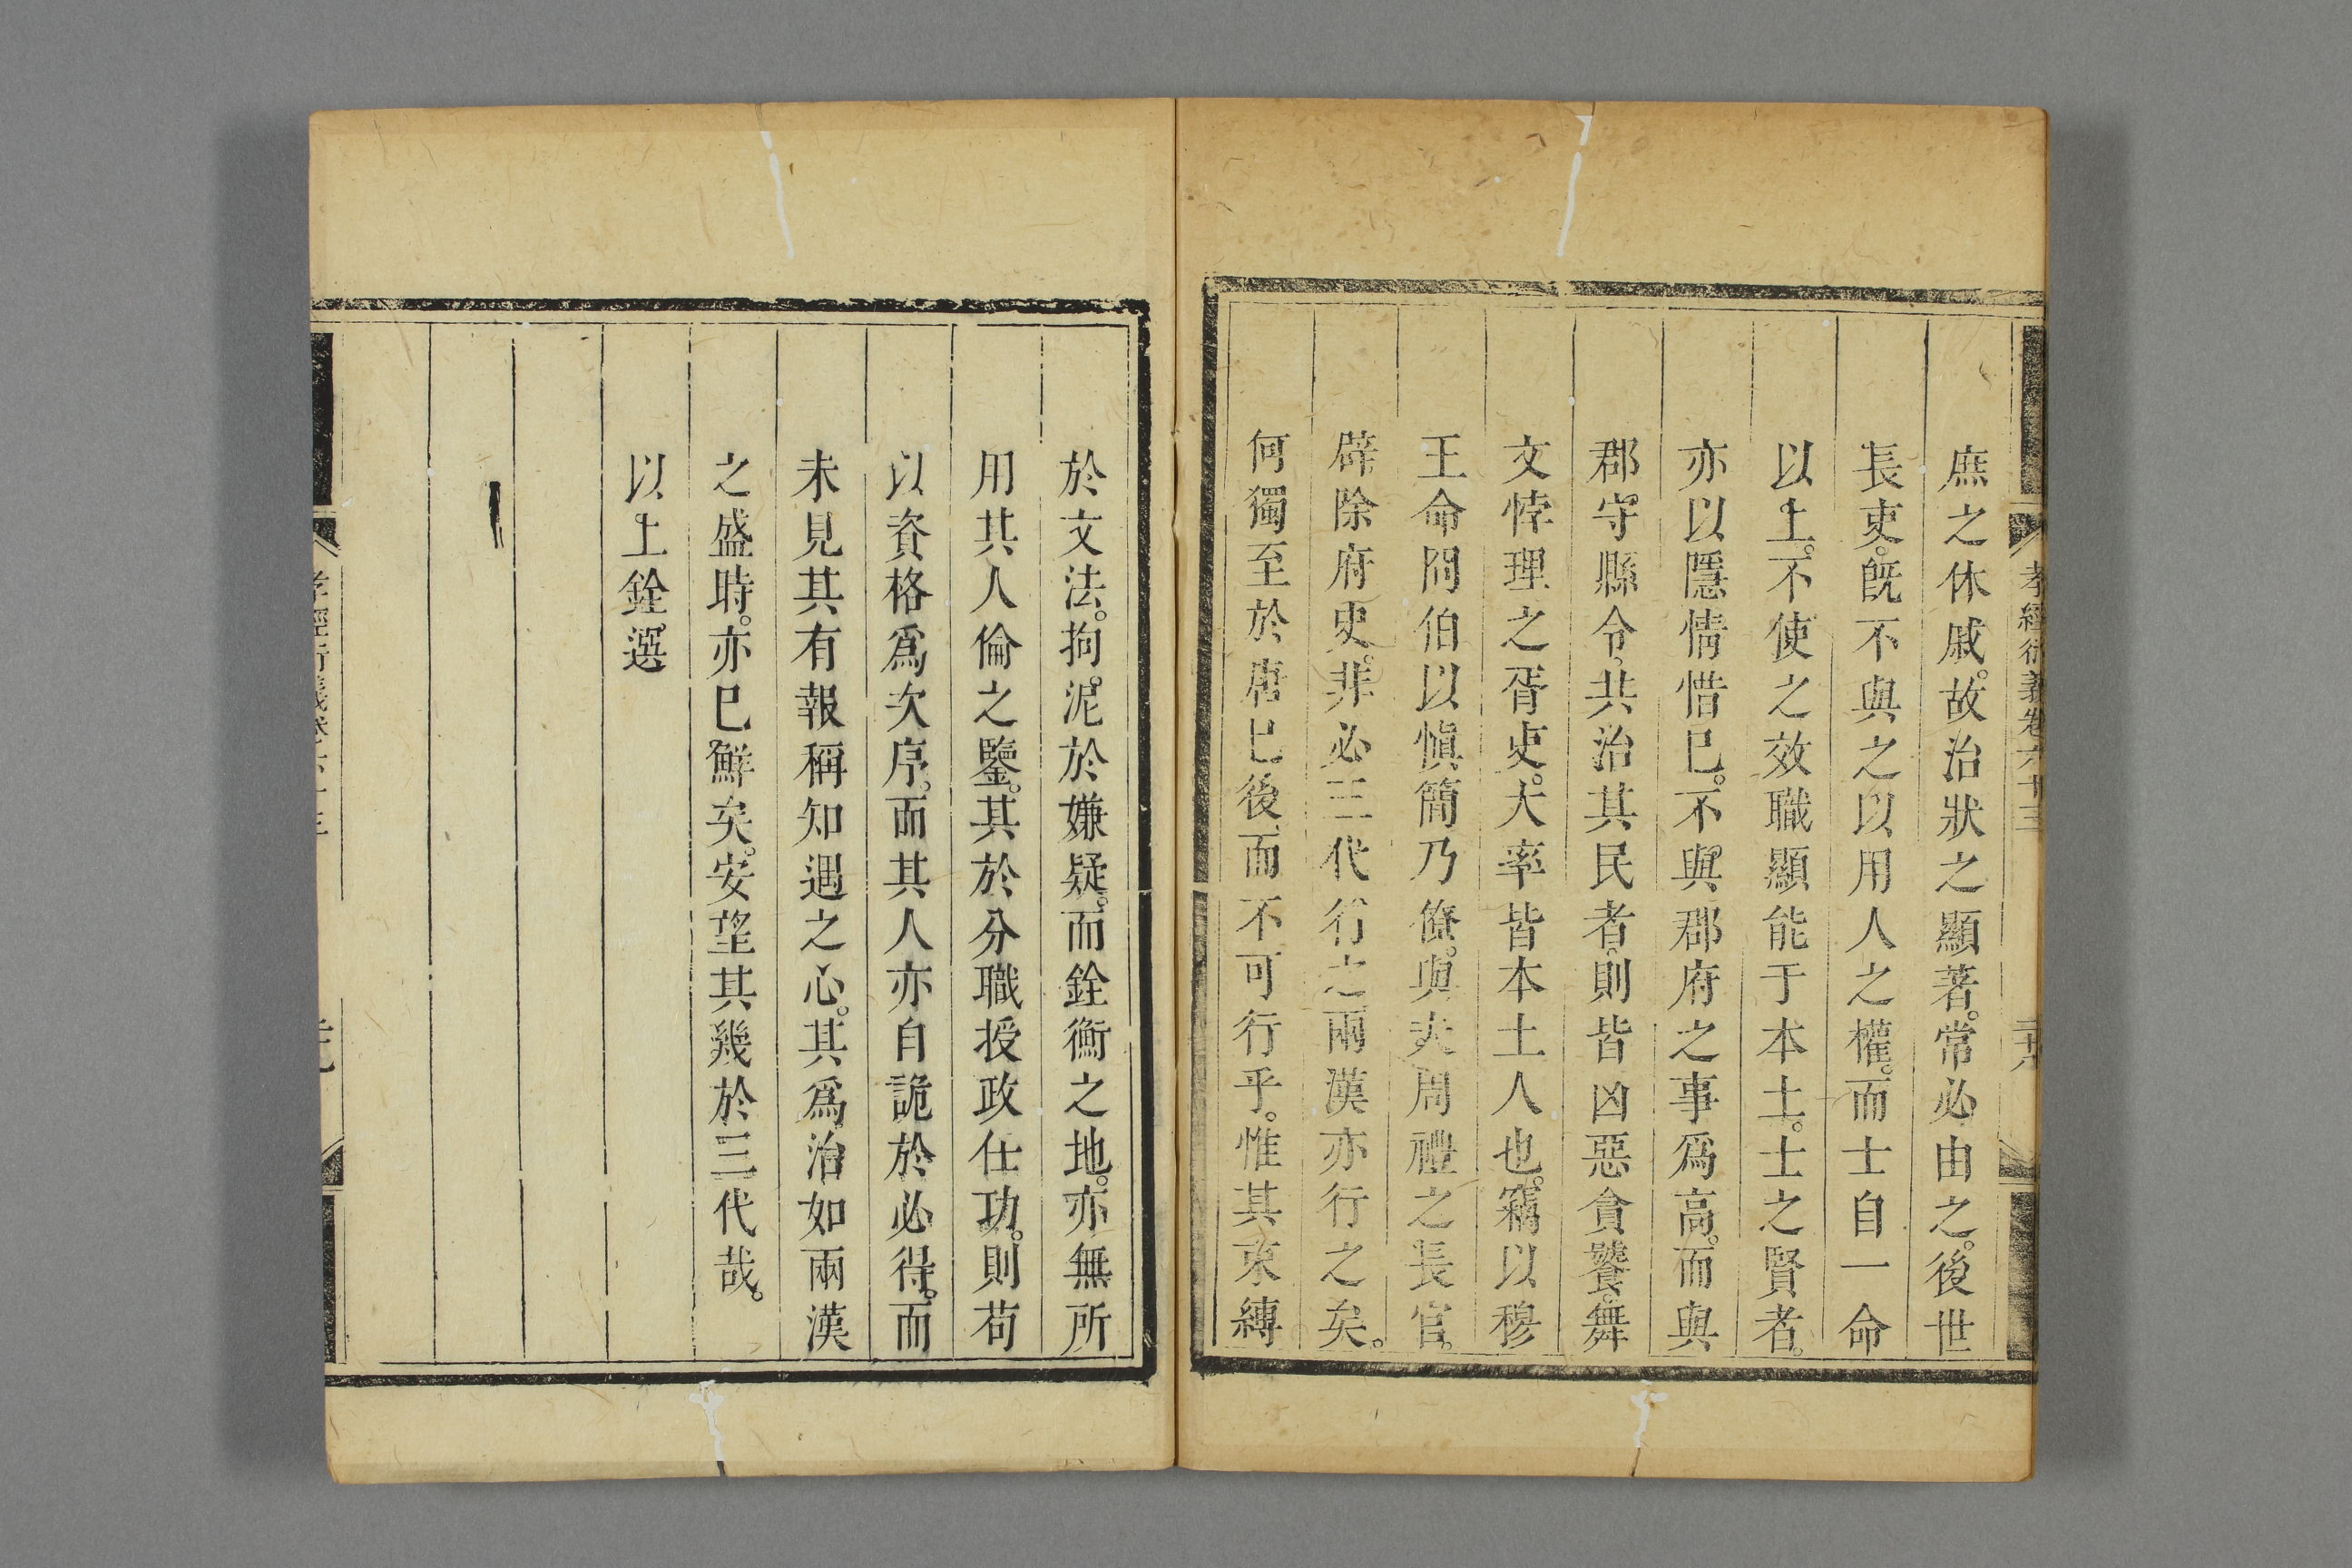 孝經衍義卷六十三
二十八
庶之休戚。故治狀之顯著。常必由之。後世
長吏。既不與之以用人之權。而士自一命
以上。不使之效職顯能于本土。士之賢者。
亦以隱情惜已。不與郡府之事爲高。而與
郡守縣令。共治其民者。則皆凶惡貪饕。舞
文悖理之胥吏。大率皆本土人也。竊以穆
王命冏伯以愼簡乃僚。與夫周禮之長官。
辟除府史。非必三代行之。兩漢亦行之矣。
何獨至於唐已後而不可行乎。惟其束縛
於文法。拘泥於嫌疑。而銓衡之地。亦無所
用其人倫之鑒。其於分職授政仕功。則苟
以資格爲次序。而其人亦自詭於必得。而
未見其有報稱知遇之心。其爲治如兩漢
之盛時。亦已鮮矣。安望其幾於三代哉。
以上銓選
孝經衍義卷六十三